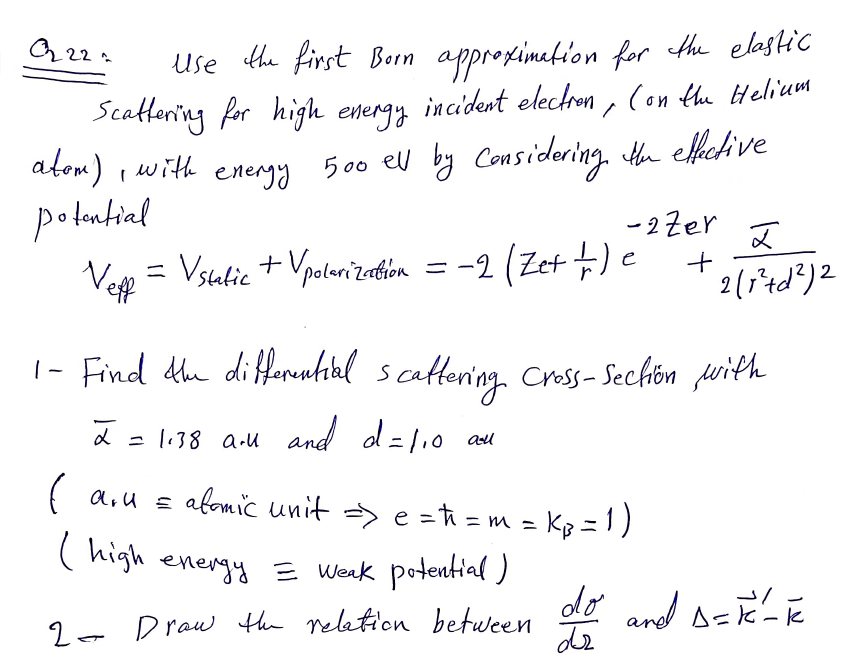 Q22: Use the first Born approximation for the elastic
Scattering for high energy incident electron, (on the Helium
atom), with energy 500 eV by Considering the effective
potential
V_eff = V_static + V_polarization = -2 (Ze + 1/r) e^{-2Zer} + ᾱ / 2(r²+d²)²
1- Find the differential scattering Cross-Section, with
ᾱ = 1.38 a.u and d = 1.0 au
( a.u ≡ atomic unit ⇒ e = ħ = m = K_B = 1)
( high energy ≡ weak potential )
2- Draw the relation between dσ/dΩ and Δ = k⃗' - k̄